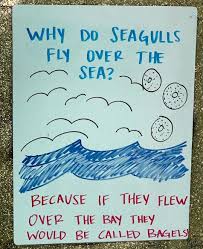 WHY DO SEAGULLS
FLY OVER THE
SEA?
BECAUSE IF THEY FLEW
OVER THE BAY THEY
WOULD BE CALLED BAGELS